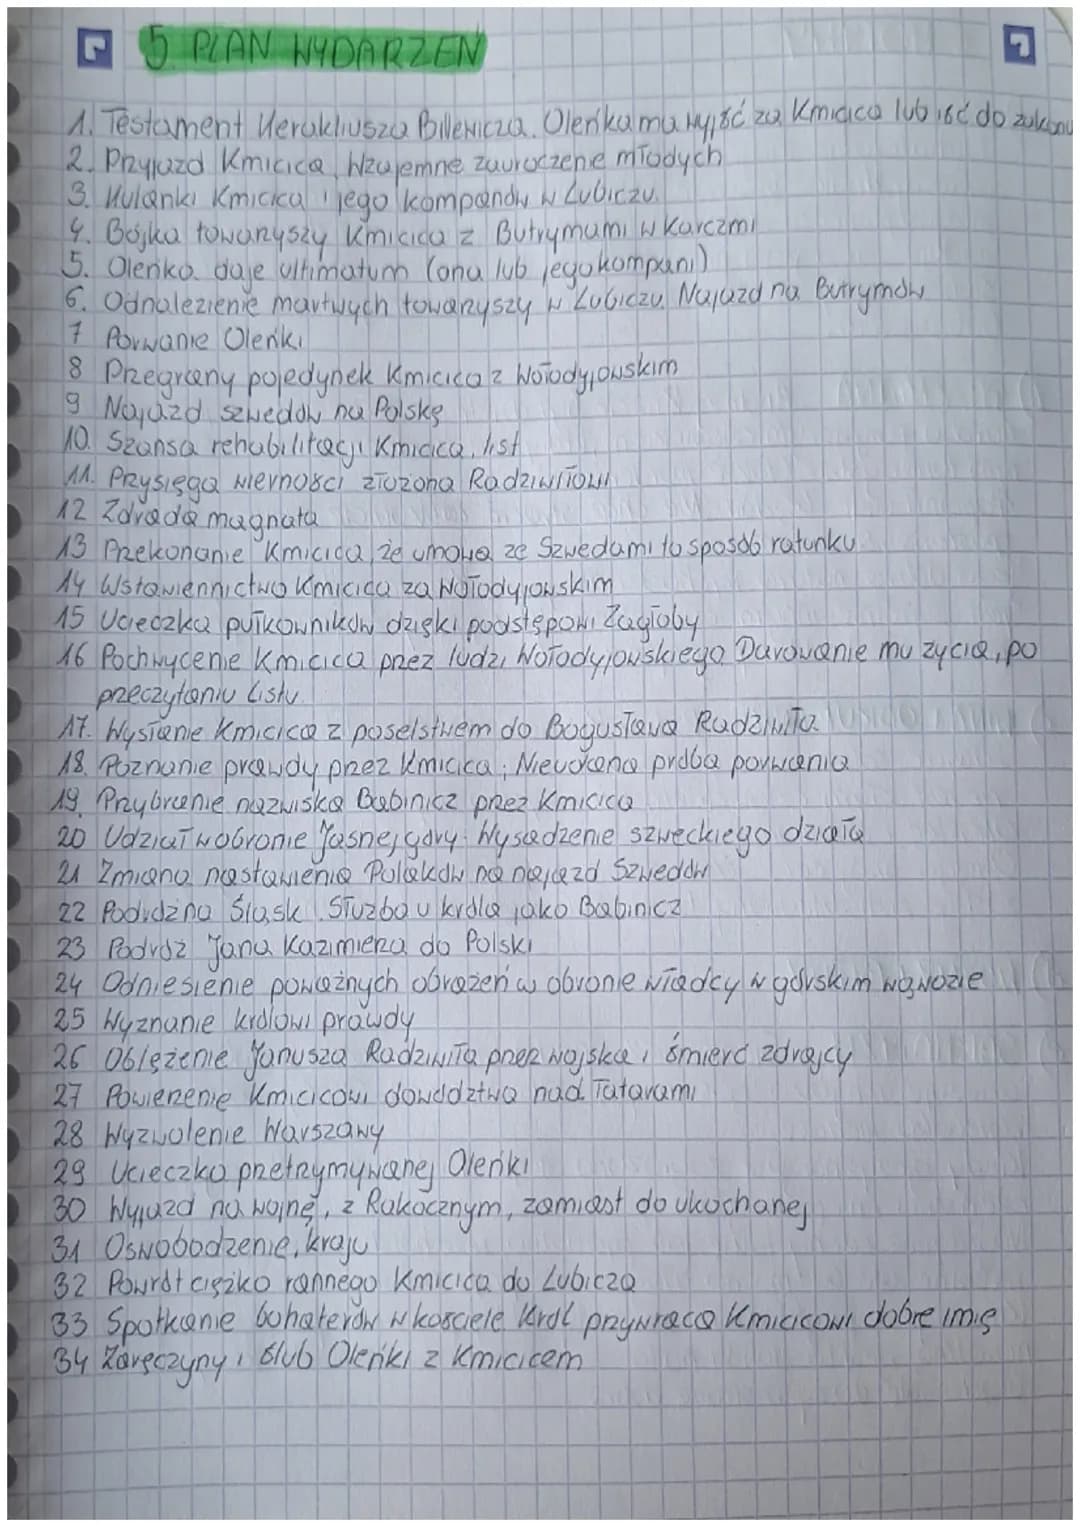 5. PLAN WYDARZEŃ
1. Testament Herakliusza Billewicza. Oleńka ma wyjść za Kmicica lub iść do zakonu
2. Przyjazd Kmicica, Wzajemne zauroczenie młodych
3. Hulanki Kmicica i jego kompanów w Lubiczu.
4. Bójka towarzyszy Kmicica z Butrymami w karczmi
5. Oleńka daje ultimatum (ona lub jego kompani)
6. Odnalezienie martwych towarzyszy w Lubiczu. Najazd na Butrymów
7 Porwanie Oleńki
8 Przegrany pojedynek Kmicica z Wołodyjowskim
9 Najazd szwedów na Polskę
10. Szansa rehabilitacji Kmicica, list
11. Przysięga wierności złożona Radziwiłłowi
12 Zdrada magnata
13 Przekonanie Kmicica, że umowa ze Szwedami to sposób ratunku
14 Wstawiennictwo Kmicica za Wołodyjowskim
15 Ucieczka pułkowników dzięki podstępowi Zagłoby
16 Pochwycenie Kmicica przez ludzi Wołodyjowskiego Darowanie mu życia, po
przeczytaniu listu
17. Wysłanie Kmicica z poselstwem do Bogusława Radziwiłła.
18. Poznanie prawdy przez Kmicica; Nieudana próba porwania
19. Przybranie nazwiska Babinicz przez Kmicica
20 Udział w obronie Jasnej góry. Wysadzenie szweckiego działa
21 Zmiana nastawienia Polaków na najazd Szwedów
22 Podróż na Śląsk. Służba u króla jako Babinicz
23 Podróż Jana Kazimierza do Polski
24 Odniesienie poważnych obrażeń w obronie władcy w górskim wąwozie
25 Wyznanie królowi prawdy
26 Oblężenie Janusza Radziwiła przez wojska i śmierć zdrajcy
27 Powierzenie Kmicicowi dowództwa nad Tatarami
28 Wyzwolenie Warszawy
29 Ucieczka przetrzymywanej Oleńki
30 Wyjazd na wojnę, z Rakoczym, zamiast do ukochanej
31 Oswobodzenie, kraju
32 Powrót ciężko rannego Kmicica do Lubicza
33 Spotkanie bohaterów w kościele Król przywraca Kmicicowi dobre imię
34 Zaręczyny i ślub Oleńki z Kmicicem